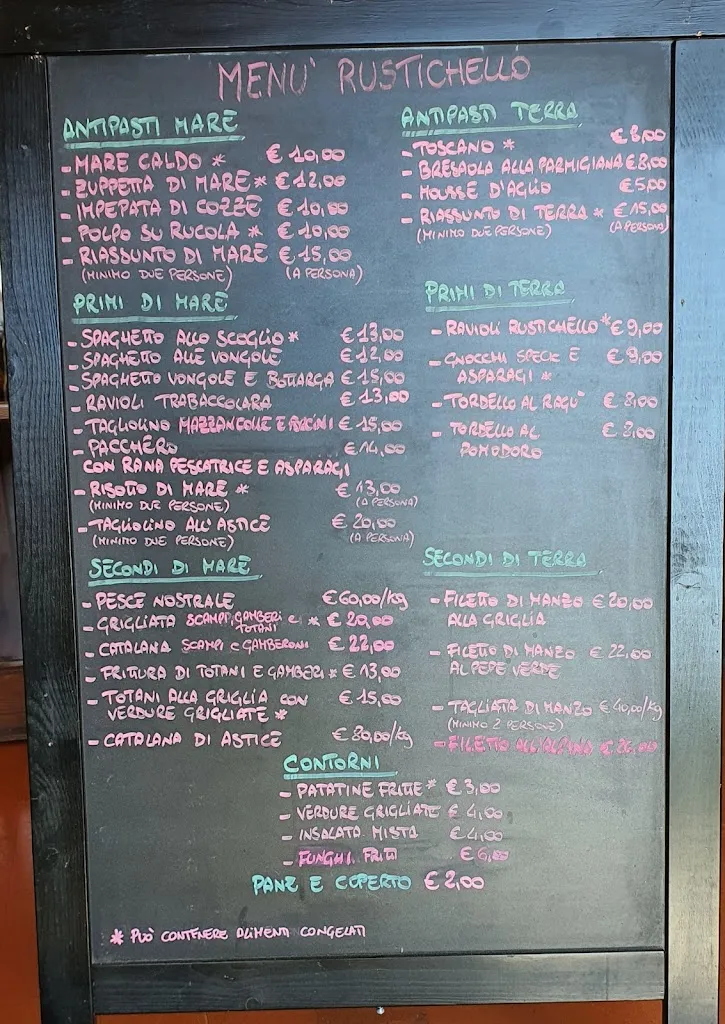 MENU' RUSTICHELLO
ANTIPASTI MARE
- MARE CALDO * € 10,00
- ZUPPETTA DI MARE * € 12,00
- IMPEPATA DI COZZE € 10,00
- POLPO SU RUCOLA * € 10,00
- RIASSUNTO DI MARE € 15,00
(MINIMO DUE PERSONE) (A PERSONA)
ANTIPASTI TERRA
- TOSCANO * € 8,00
- BRESAOLA ALLA PARMIGIANA € 8,00
- MOUSSE D'AGLIO € 5,00
- RIASSUNTO DI TERRA * € 15,00
(MINIMO DUE PERSONE) (A PERSONA)
PRIMI DI MARE
- SPAGHETTO ALLO SCOGLIO * € 13,00
- SPAGHETTO ALLE VONGOLE € 12,00
- SPAGHETTO VONGOLE E BOTTARGA € 15,00
- RAVIOLI TRABACCOLARA € 13,00
- TAGLIOLINO MAZZANCOLLE E PORCINI € 15,00
- PACCHERO € 14,00
CON RANA PESCATRICE E ASPARAGI
- RISOTTO DI MARE * € 13,00
(MINIMO DUE PERSONE) (A PERSONA)
- TAGLIOLINO ALL'ASTICE € 20,00
(MINIMO DUE PERSONE) (A PERSONA)
PRIMI DI TERRA
- RAVIOLI RUSTICHELLO * € 9,00
- GNOCCHI SPECK E € 9,00
ASPARAGI *
- TORDELLO AL RAGU' € 8,00
- TORDELLO AL € 8,00
POMODORO
SECONDI DI MARE
- PESCE NOSTRALE € 60,00/Kg
- GRIGLIATA SCAMPI, GAMBERI E * € 20,00
TOTANI
- CATALANA SCAMPI E GAMBERONI € 22,00
- FRITTURA DI TOTANI E GAMBERI * € 13,00
- TOTANI ALLA GRIGLIA CON € 15,00
VERDURE GRIGLIATE *
- CATALANA DI ASTICE € 80,00/Kg
SECONDI DI TERRA
- FILETTO DI MANZO € 20,00
ALLA GRIGLIA
- FILETTO DI MANZO € 22,00
AL PEPE VERDE
- TAGLIATA DI MANZO € 40,00/Kg
(MINIMO 2 PERSONE)
- FILETTO € 26,00
CONTORNI
- PATATINE FRITTE * € 3,00
- VERDURE GRIGLIATE € 4,00
- INSALATA MISTA € 4,00
- FUNGHI FRITTI € 6,00
PANE E COPERTO € 2,00
* PUÒ CONTENERE ALIMENTI CONGELATI